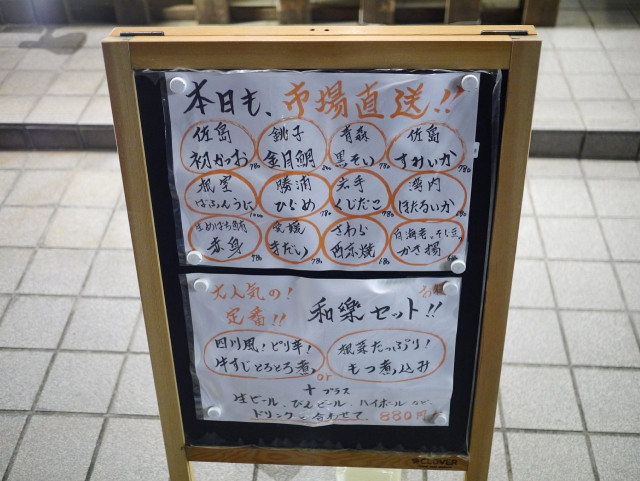 本日も、市場直送!!
佐島 銚子 青森 佐島
初がつお 780 金目鯛 黒そい 780 すみいか
根室 勝浦 岩手 湾内
ばふんうに ひらめ 780 くじだこ 780 ほたるいか
生めばち鮪 愛媛 さわら 白海老、そら豆、
赤身 780 まだい 780 西京焼 かき揚 780
大人気の!
定番!! 和樂セット!!
四川風!ピリ辛! 根菜たっぷり!
牛すじとろとろ煮 or もつ煮込み
+ プラス
生ビール、びんビール、ハイボールなど、
ドリンクと合わせて 880円
CLOVER